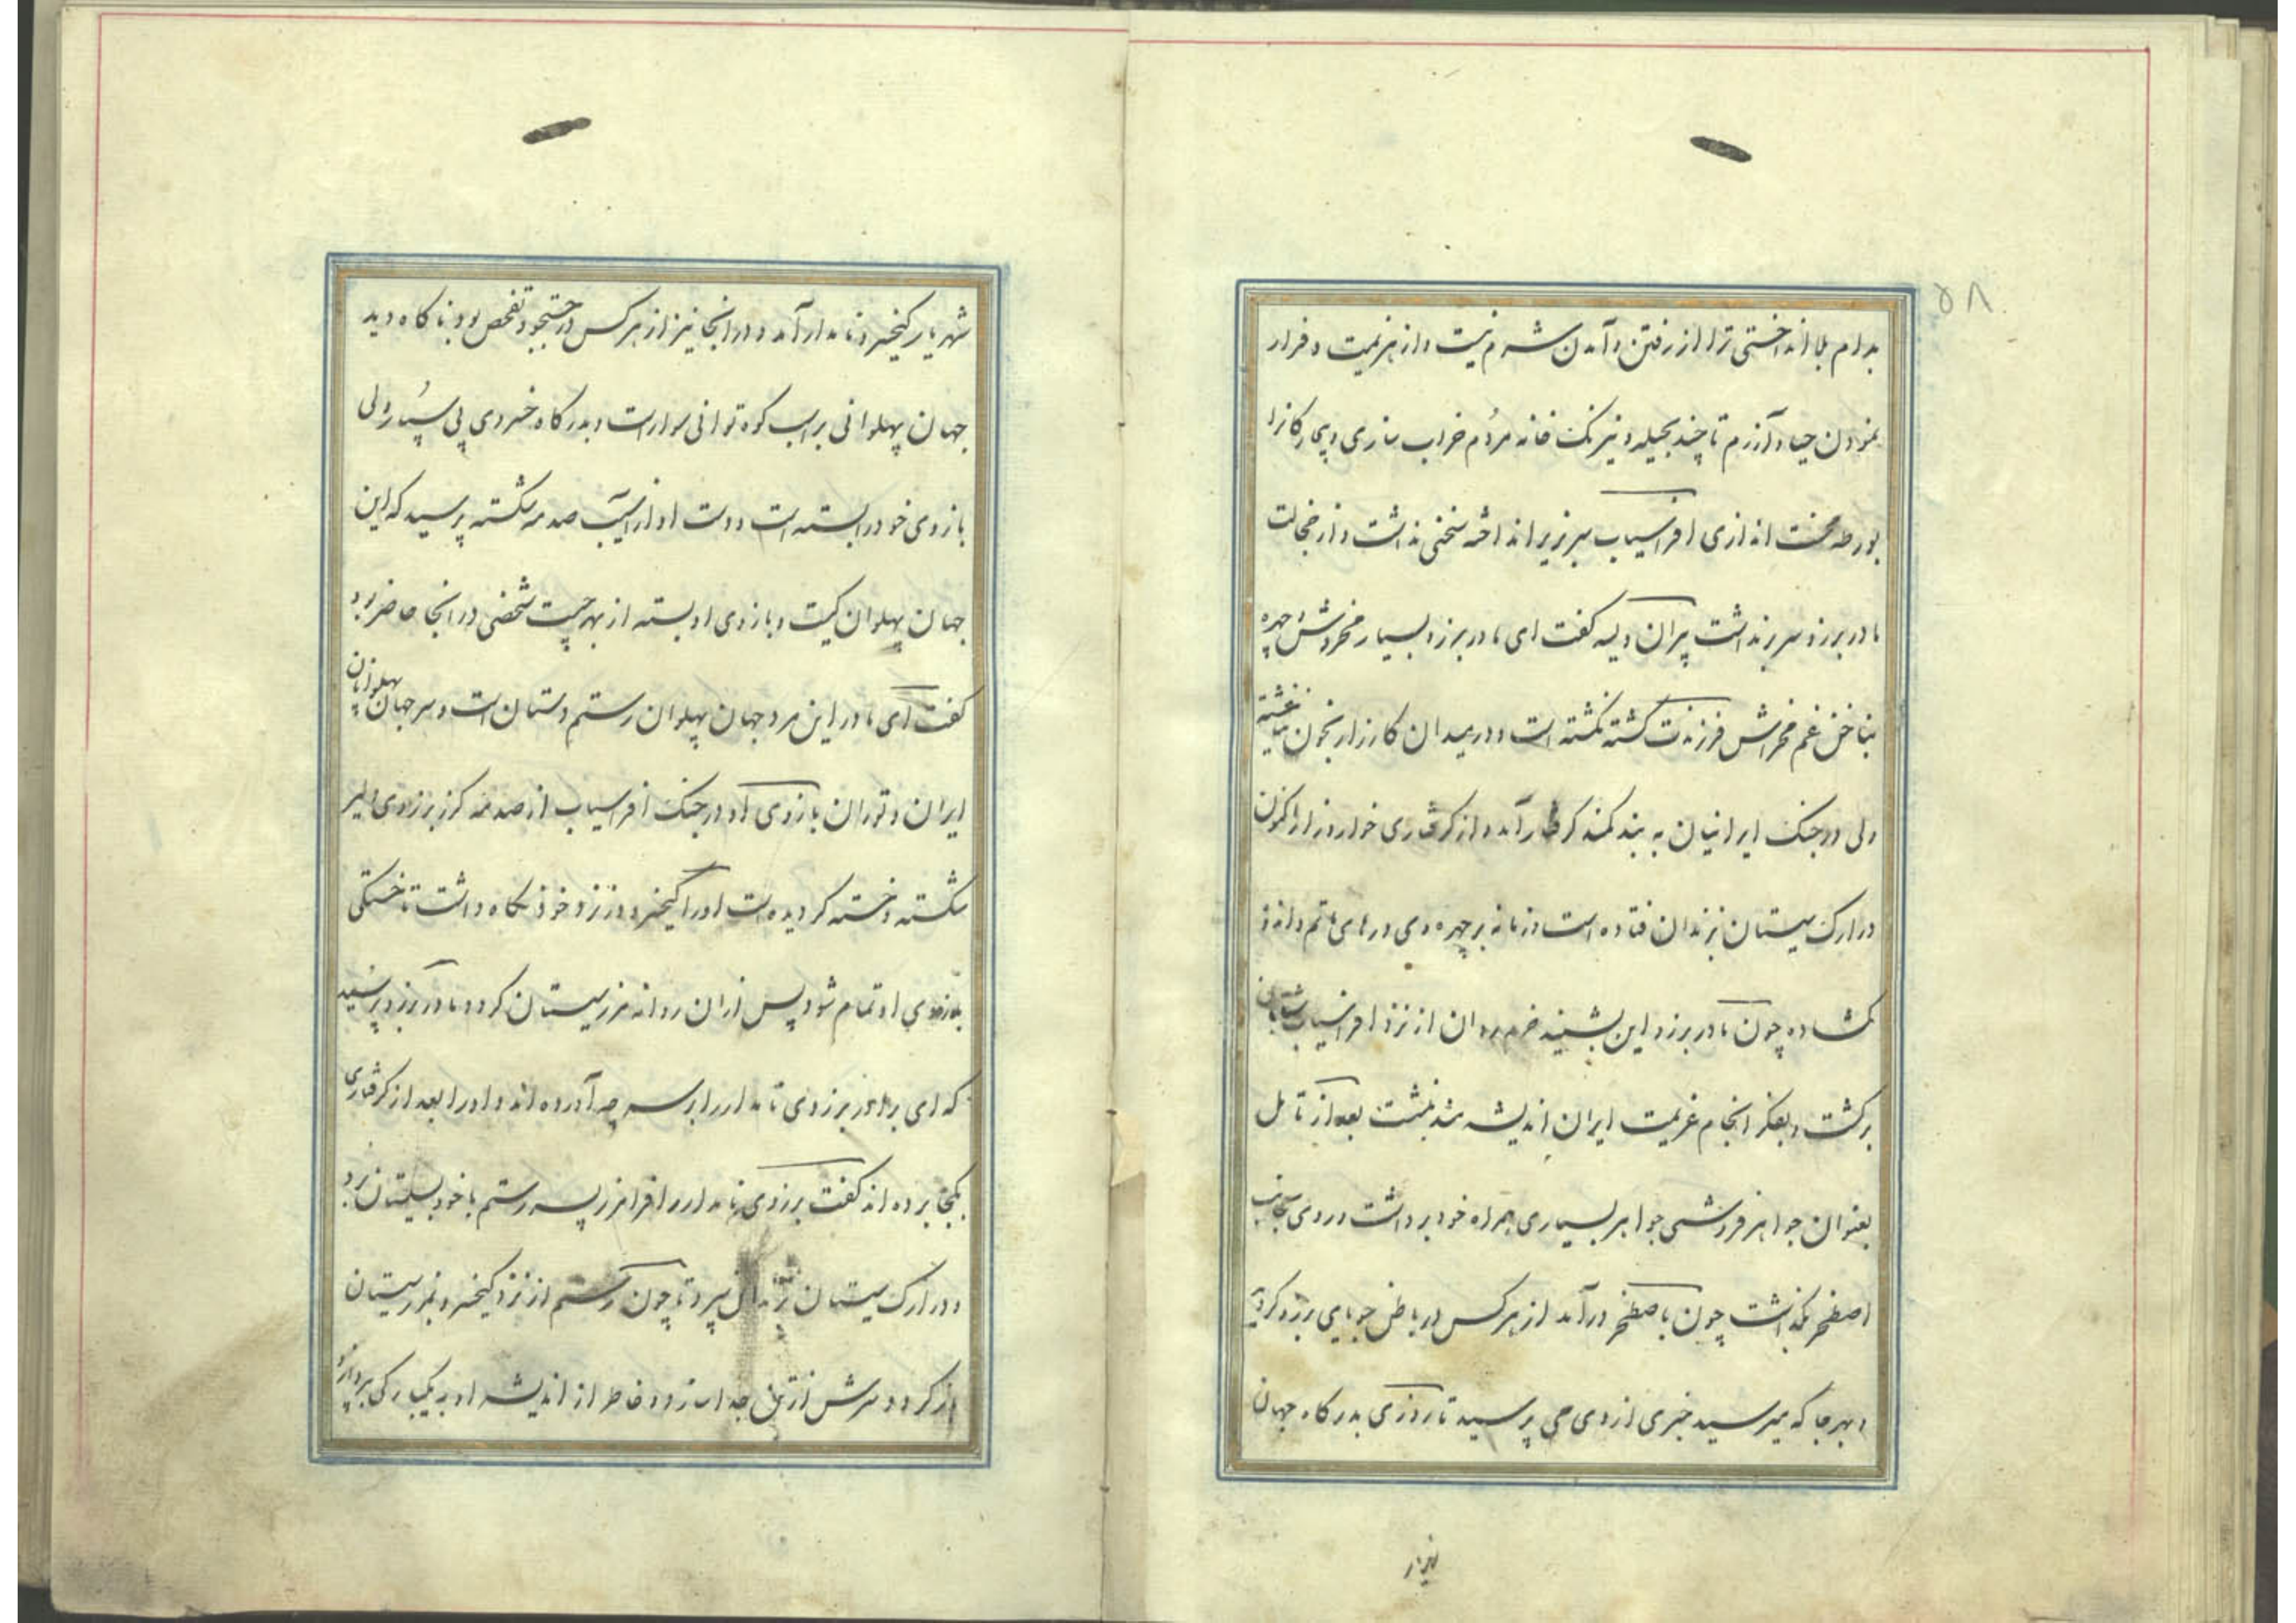 ۵۸
بدام بلا انداختی ترا از رفتن و آمدن شرم نیست و از هزیمت و فرار
نمودن حیا و آزرم تا چند بحیله و نیرنک خانه مردم خراب سازی و بیچارکانرا
بورطه محنت اندازی افراسیاب سر بزیر انداخته سخنی نداشت و از خجالت
مادر برزو سر برنداشت پیران ویسه کفت ای مادر برزو بسیار مخروش و چهره
بناخن غم مخراش فرزندت کشته نکشته است و در میدان کارزار بخون نیاغشته
ولی در جنک ایرانیان به بند کمند کرفتار آمده و از کرفتاری خوار و زار اکنون
در ارک سیستان بزندان فتاده است و زمانه بر چهره وی درهای ماتم و اندوه
کشاده چون مادر برزو این بشنید خرم روان از نزد افراسیاب شتابان
برکشت و بفکر انجام عزیمت ایران اندیشه مند بنشست بعد از تامل
بعنوان جواهر فروشی جواهر بسیاری همراه خود برداشت و روی بجانب
اصطخر بکذاشت چون باصطخر درآمد از هرکس در باطن جویایی برزو کردید
و بهر جا که میرسید خبری از وی می پرسید تا روزی بدرکاه جهان
شهریار کیخسرو نامدار آمد و در انجا نیز از هرکس در جستجو و تفحص بود ناکاه دید
جهان پهلوانی بر اسب کوه توانی سوار است و بدرکاه خسروی پی سپار ولی
بازوی خود را بسته است و دست او از آسیب صدمه شکسته پرسید که این
جهان پهلوان کیست و بازوی او بسته از بهر چیست شخصی در انجا حاضر بود
کفت ای مادر این مرد جهان پهلوان رستم دستان است و سر جهان پهلوانان
ایران و توران بازوی او در جنک افراسیاب از صدمه کرز برزوی دلیر
شکسته و خسته کردیده است او را کیخسرو در نزد خود نکاه داشت تا خستکی
بازوی او تمام شود پس از ان روانه مرز سیستان کردد مادر برزو پرسید
که ای برادر برزوی نامدار را بر سر چه آورده اند و او را بعد از کرفتاری
بکجا برده اند کفت برزوی نامدار را فرامرز پسر رستم با خود بسیستان برد
و در ارک سیستان بزندان سپرد تا چون رستم از نزد کیخسرو بمرز سیستان
باز کردد سرش از تن جدا سازد و خاطر از اندیشه او به یکبارکی بپردازد